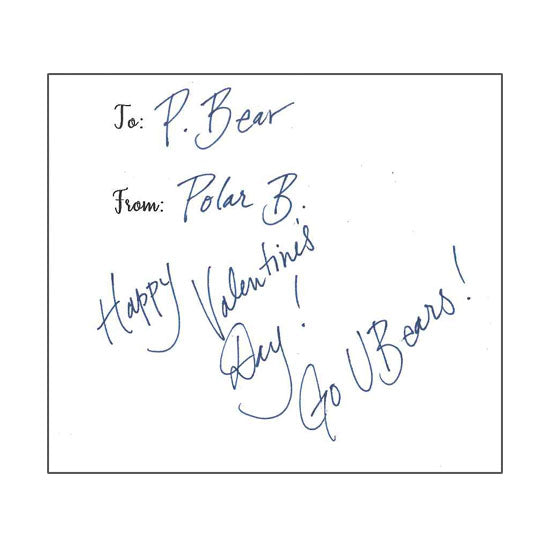 To: P. Bear
From: Polar B.
Happy Valentine's
Day!
Go UBears!